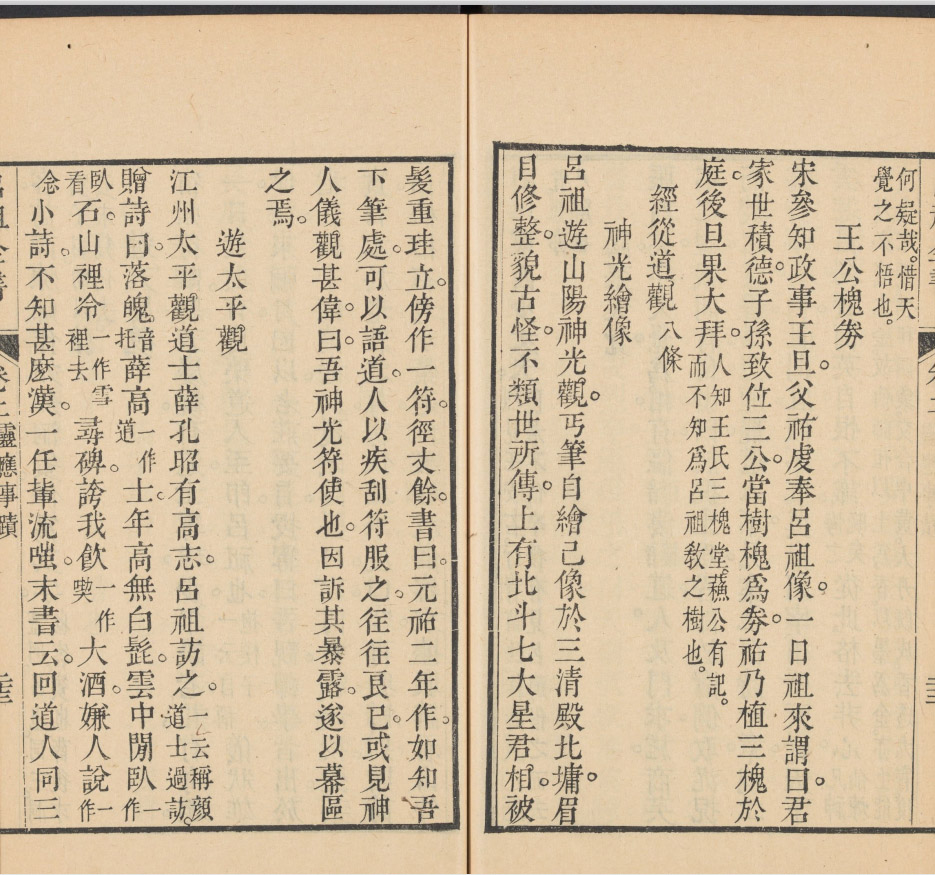 何疑哉。惜天
覺之不悟也。
王公槐劵
宋參知政事王旦。父祐虔奉呂祖像。一日祖來謂曰。君
家世積德。子孫致位三公。當樹槐爲劵。祐乃植三槐於
庭。後旦果大拜。人知王氏三槐堂。蘓公有記。
而不知爲呂祖敎之樹也。
經從道觀八條
神光繪像
呂祖遊山陽神光觀。丐筆自繪己像於三清殿北墉。眉
目修整。貌古怪。不類世所傳。上有北斗七大星君相。被
髮重珪立。傍作一符。徑丈餘。書曰。元祐二年作。如知吾
下筆處。可以語道。人以疾刮符服之。往往良已。或見神
人儀觀甚偉。曰。吾神光符使也。因訴其暴露。遂以幕區
之焉。
遊太平觀
江州太平觀道士薛孔昭有高志。呂祖訪之。一云稱顔
道士過訪。
贈詩曰。落魄音托薛高一作道士。年高無白髭。雲中閒臥一作
臥看石。山裡冷一作雪裡去尋碑。誇我飮一作喫大酒。嫌人說一作
念小詩。不知甚麽漢。一任輩流嗤。末書云。回道人同三
卷二靈應事蹟